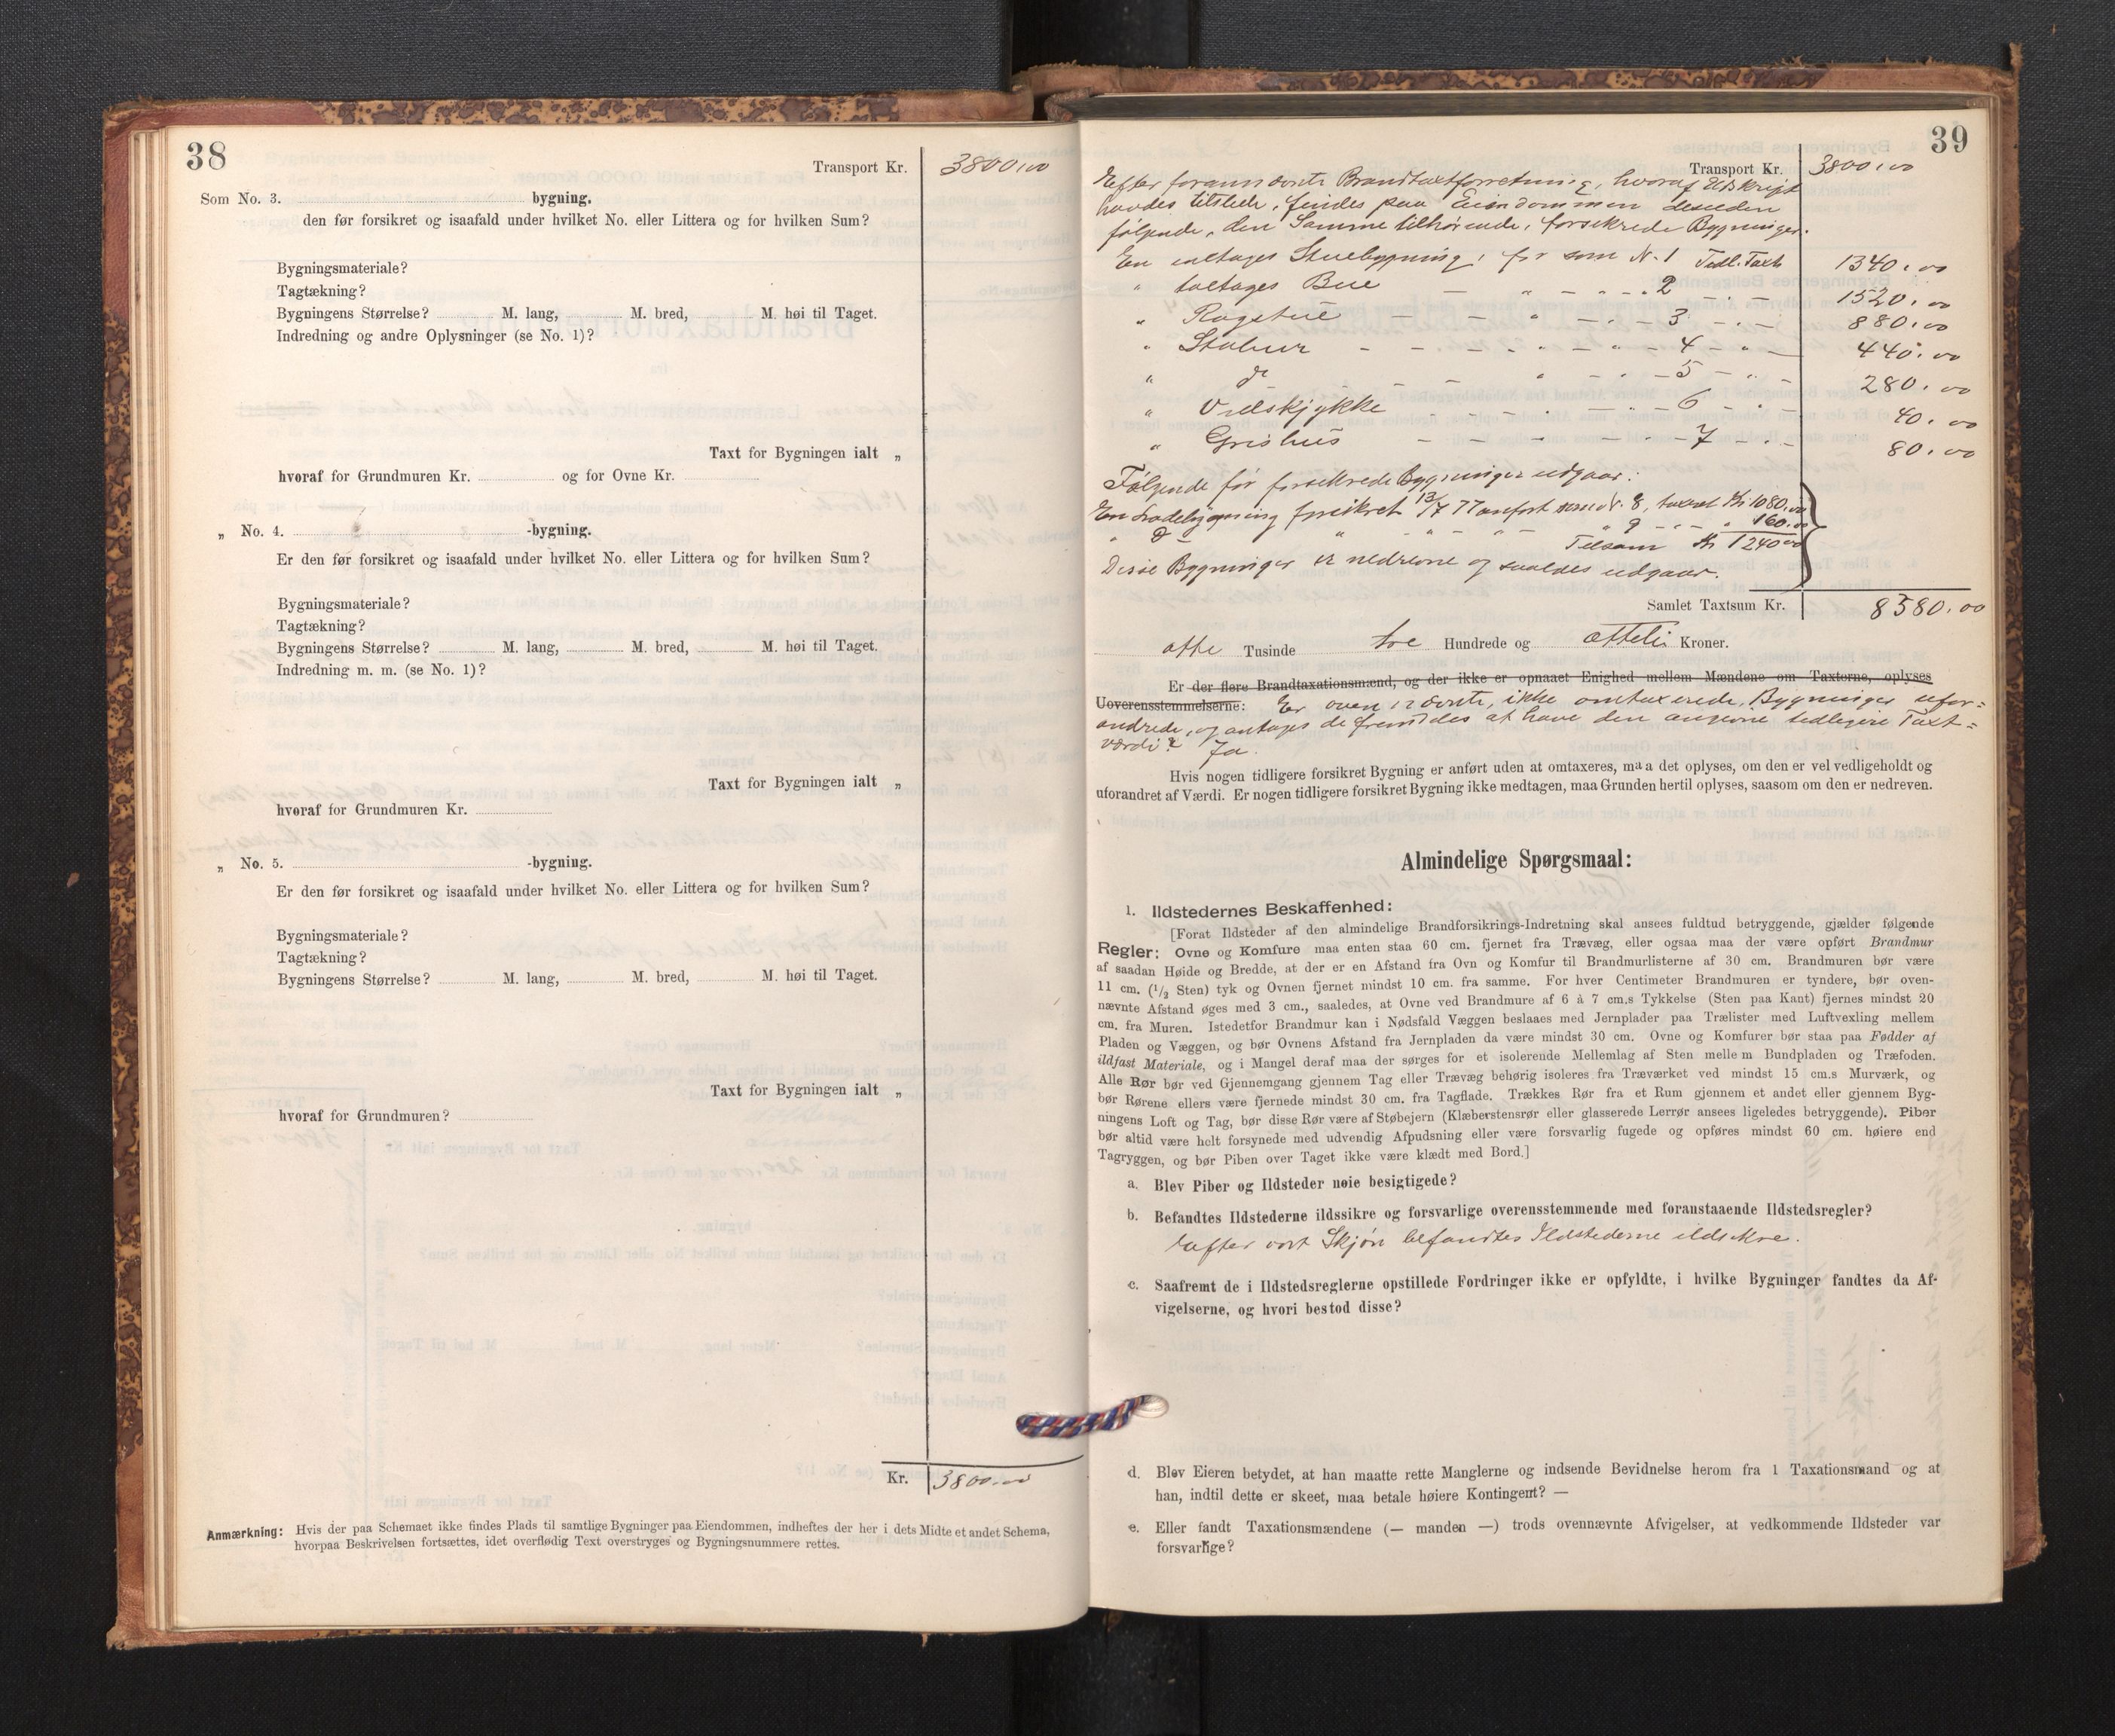 38
Transport Kr. 3800,00
Som No. 3. bygning.
den før forsikret og isaafald under hvilket No. eller Littera og for hvilken Sum?
Bygningsmateriale?
Tagtækning?
Bygningens Størrelse? M. lang, M. bred, M. høi til Taget.
Indredning og andre Oplysninger (se No. 1)?
Taxt for Bygningen ialt „
hvoraf for Grundmuren Kr. og for Ovne Kr.
„ No. 4. -bygning.
Er den før forsikret og isaafald under hvilket No. eller Littera og for hvilken Sum?
Bygningsmateriale?
Tagtækning?
Bygningens Størrelse? M. lang, M. bred, M. høi til Taget.
Indredning m. m. (se No. 1)?
Taxt for Bygningen ialt „
hvoraf for Grundmuren Kr.
„ No. 5. -bygning.
Er den før forsikret og isaafald under hvilket No. eller Littera og for hvilken Sum?
Bygningsmateriale?
Tagtækning?
Bygningens Størrelse? M. lang, M. bred, M. høi til Taget.
Taxt for Bygningen ialt „
hvoraf for Grundmuren?
Kr. 3800,00
Anmærkning: Hvis der paa Schemaet ikke findes Plads til samtlige Bygninger paa Eiendommen, indheftes der her i dets Midte et andet Schema,
hvorpaa Beskrivelsen fortsættes, idet overflødig Text overstryges og Bygningsnummere rettes.
39
Transport Kr. 3800,00
Efter forannævnte Brandtaxtforretning, hvoraf Udskrift
havdes tilstede, findes paa Eiendommen desuden
følgende, den Samme tilhørende, forsikrede Bygninger:
En ialtages Stuebygning, før som N. 1 Tidl. Taxt 1340,00
" toetages Bue — " — " — 2 — " — 1520,00
" Røgstue — — " — " — 3 — " — 880,00
" Stabur — — — " — " — 4 — " — 440,00
" do — — " — " — 5 — " — 280,00
" Vedskjykke — — " — " — 6 — " — 40,00
" Grishus — — — — " — 7 — " — 80,00
Følgende før forsikrede Bygninger udgaar:
En Ladebygning forsikret 13/7 77 anført som N. 8, taxert Kr 1080,00
" do " " — " — " 9 — " — " 160,00
Tilsam Kr 1240,00
Disse Bygninger er nedrevne og saaledes udgaar.
Samlet Taxtsum Kr. 8380,00
otte Tusinde tre Hundrede og otteti Kroner.
Er der flere Brandtaxationsmænd, og der ikke er opnaaet Enighed mellem Mændene om Taxterne, oplyses
Uoverensstemmelserne: Er ovennævnte, ikke omtaxerede, Bygninger ufor=
andrede, og antages de fremdeles at have den angivne tidligere Taxt=
værdi? Ja.
Hvis nogen tidligere forsikret Bygning er anført uden at omtaxeres, maa det oplyses, om den er vel vedligeholdt og
uforandret af Værdi. Er nogen tidligere forsikret Bygning ikke medtagen, maa Grunden hertil oplyses, saasom om den er nedreven.
Almindelige Spørgsmaal:
1. Ildstedernes Beskaffenhed:
[Forat Ildsteder af den almindelige Brandforsikrings-Indretning skal ansees fuldtud betryggende, gjælder følgende
Regler: Ovne og Komfure maa enten staa 60 cm. fjernet fra Trævæg, eller ogsaa maa der være opført Brandmur
af saadan Høide og Bredde, at der er en Afstand fra Ovn og Komfur til Brandmurlisterne af 30 cm. Brandmuren bør være
11 cm. (1/2 Sten) tyk og Ovnen fjernet mindst 10 cm. fra samme. For hver Centimeter Brandmuren er tyndere, bør oven-
nævnte Afstand øges med 3 cm., saaledes, at Ovne ved Brandmure af 6 à 7 cm.s Tykkelse (Sten paa Kant) fjernes mindst 20
cm. fra Muren. Istedetfor Brandmur kan i Nødsfald Væggen beslaaes med Jernplader paa Trælister med Luftvexling mellem
Pladen og Væggen, og bør Ovnens Afstand fra Jernpladen da være mindst 30 cm. Ovne og Komfurer bør staa paa Fødder af
ildfast Materiale, og i Mangel deraf maa der sørges for et isolerende Mellemlag af Sten mellem Bundpladen og Træfoden.
Alle Rør bør ved Gjennemgang gjennem Tag eller Trævæg behørig isoleres fra Træværket ved mindst 15 cm.s Murværk, og
bør Rørene ellers være fjernede mindst 30 cm. fra Tagflade. Trækkes Rør fra et Rum gjennem et andet eller gjennem Byg-
ningens Loft og Tag, bør disse Rør være af Støbejern (Klæberstensrør eller glasserede Lerrør ansees ligeledes betryggende). Piber
bør altid være helt forsynede med udvendig Afpudsning eller være forsvarlig fugede og opføres mindst 60 cm. høiere end
Tagryggen, og bør Piben over Taget ikke være klædt med Bord.]
a. Blev Piber og Ildsteder nøie besigtigede?
b. Befandtes Ildstederne ildssikre og forsvarlige overensstemmende med foranstaaende Ildstedsregler?
Efter vort Skjøn befandtes Ildstederne ildsikre.
c. Saafremt de i Ildstedsreglerne opstillede Fordringer ikke er opfyldte, i hvilke Bygninger fandtes da Af-
vigelserne, og hvori bestod disse?
d. Blev Eieren betydet, at han maatte rette Manglerne og indsende Bevidnelse herom fra 1 Taxationsmand og at
han, indtil dette er skeet, maa betale høiere Kontingent? —
e. Eller fandt Taxationsmændene (— manden —) trods ovennævnte Afvigelser, at vedkommende Ildsteder var
forsvarlige?